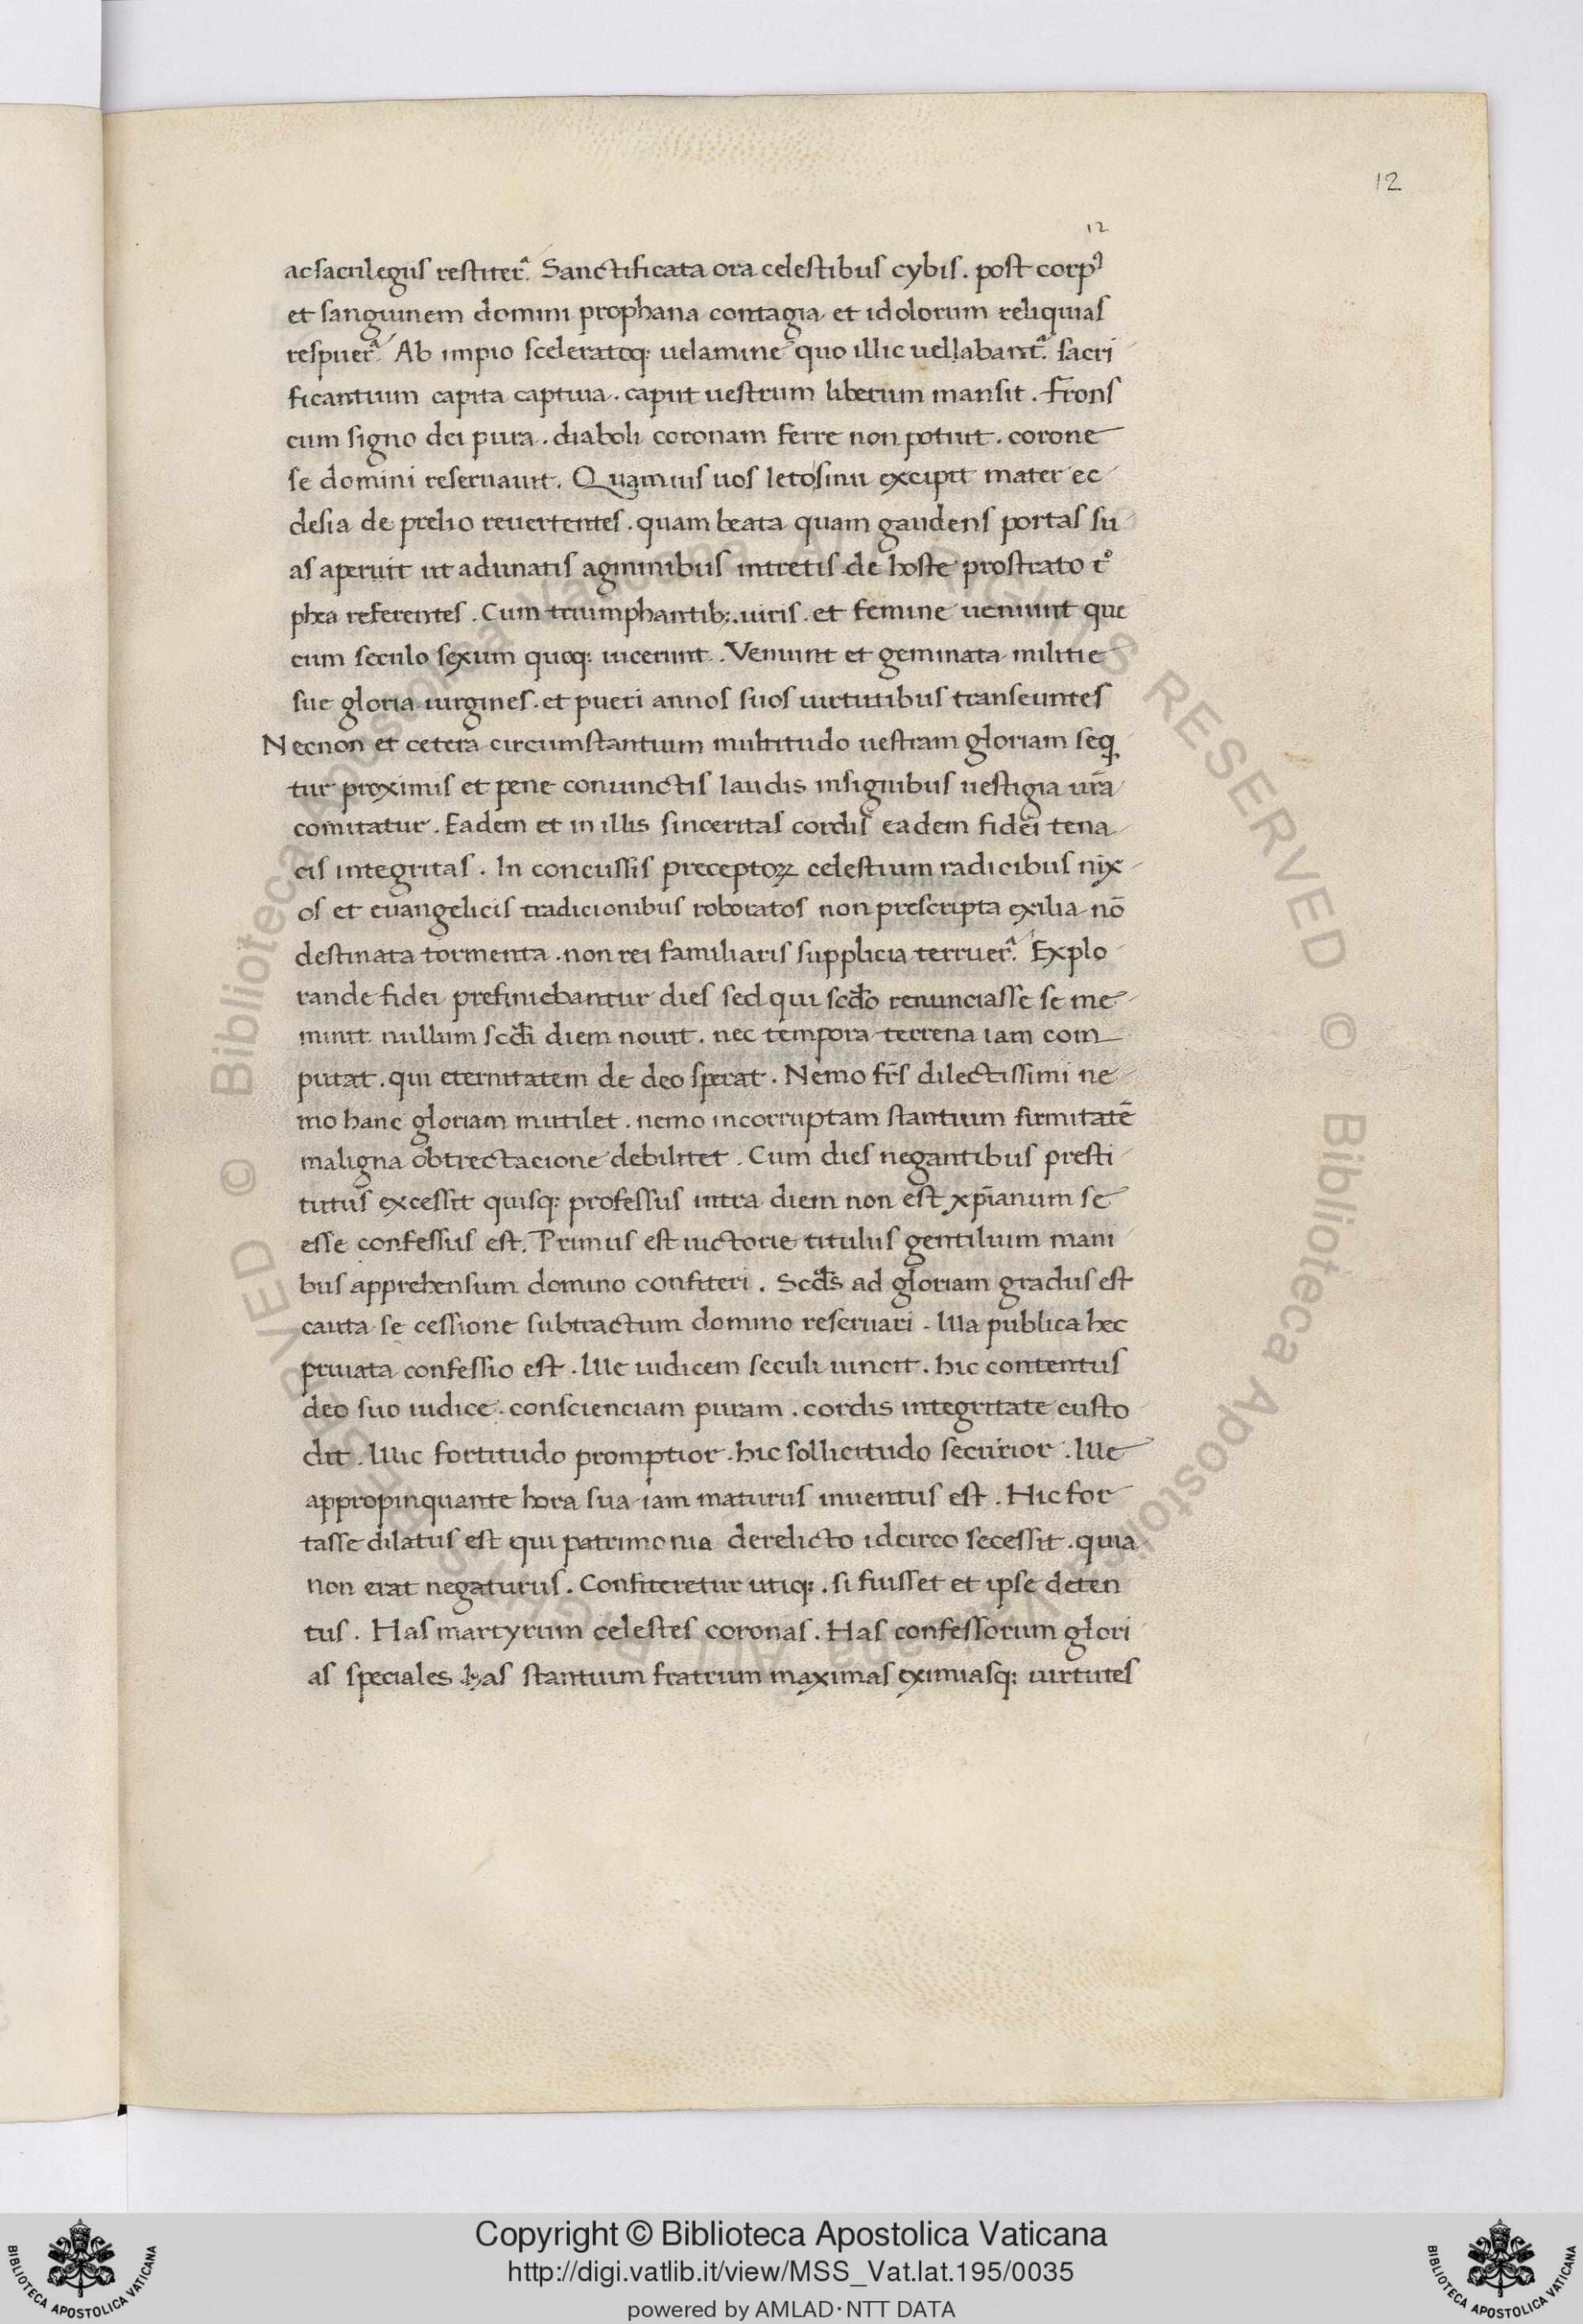 12
12
ac sacrilegiis restiter̉. Sanctificata ora celestibus cybis . post corpꝰ
et sanguinem domini prophana contagia et idolorum reliquias
respuer̉. Ab impio sceleratoq; uelamine quo illic uellabant̉. sacri
ficantium capita captiua . caput uestrum liberum mansit . Frons
cum signo dei pura . diaboli coronam ferre non potuit . corone
se domini reseruauit . Quamuis uos leto sinu excipit mater ec
clesia de prelio reuertentes . quam beata quam gaudens portas su
as aperuit ut adunatis agminibus intretis de hoste prostrato tͦ
phea referentes . Cum triumphantib; . uiris . et femine ueniunt que
cum seculo sexum quoq; uicerunt . Veniunt et geminata militie
sue gloria uirgines . et pueri annos suos uirtutibus transeuntes
Necnon et cetera circumstantium multitudo uestram gloriam seq̇
tur proximis et pene coniunctis laudis insignibus uestigia ur̄a
comitatur . Eadem et in illis sinceritas cordis eadem fidei tena
cis integritas . In concussis preceptoꝝ celestium radicibus nix
os et euangelicis tradicionibus roboratos non prescripta exilia nō
destinata tormenta . non rei familiaris supplicia terruer̉. Explo
rande fidei prefiniebantur dies sed qui scđo renunciasse se me
minit nullum scđi diem nouit . nec tempora terrena iam com
putat . qui eternitatem de deo sperat . Nemo fr̄s dilectissimi ne
mo hanc gloriam mutilet . nemo incorruptam stantium firmitatē
maligna obtrectacione debilitet . Cum dies negantibus presti
tutus excessit quisq; professus intra diem non est xp̄ianum se
esse confessus est . Primus est uictorie titulus gentilium mani
bus apprehensum domino confiteri . Scđs ad gloriam gradus est
cauta se cessione subtractum domino reseruari . Illa publica hec
priuata confessio est . Ille iudicem seculi uincit . hic contentus
deo suo iudice . conscienciam puram . cordis integritate custo
dit . Illic fortitudo promptior . hic sollicitudo securior . Ille
appropinquante hora sua iam maturus inuentus est . Hic for
tasse dilatus est qui patrimonia derelicto idcirco secessit . quia
non erat negaturus . Confiteretur utiq; . si fuisset et ipse deten
tus . Has martyrum celestes coronas . Has confessorum glori
as speciales . has stantium fratrum maximas eximiasq; uirtutes
Copyright © Biblioteca Apostolica Vaticana
http://digi.vatlib.it/view/MSS_Vat.lat.195/0035
powered by AMLAD·NTT DATA
BIBLIOTECA APOSTOLICA VATICANA
BIBLIOTECA APOSTOLICA VATICANA